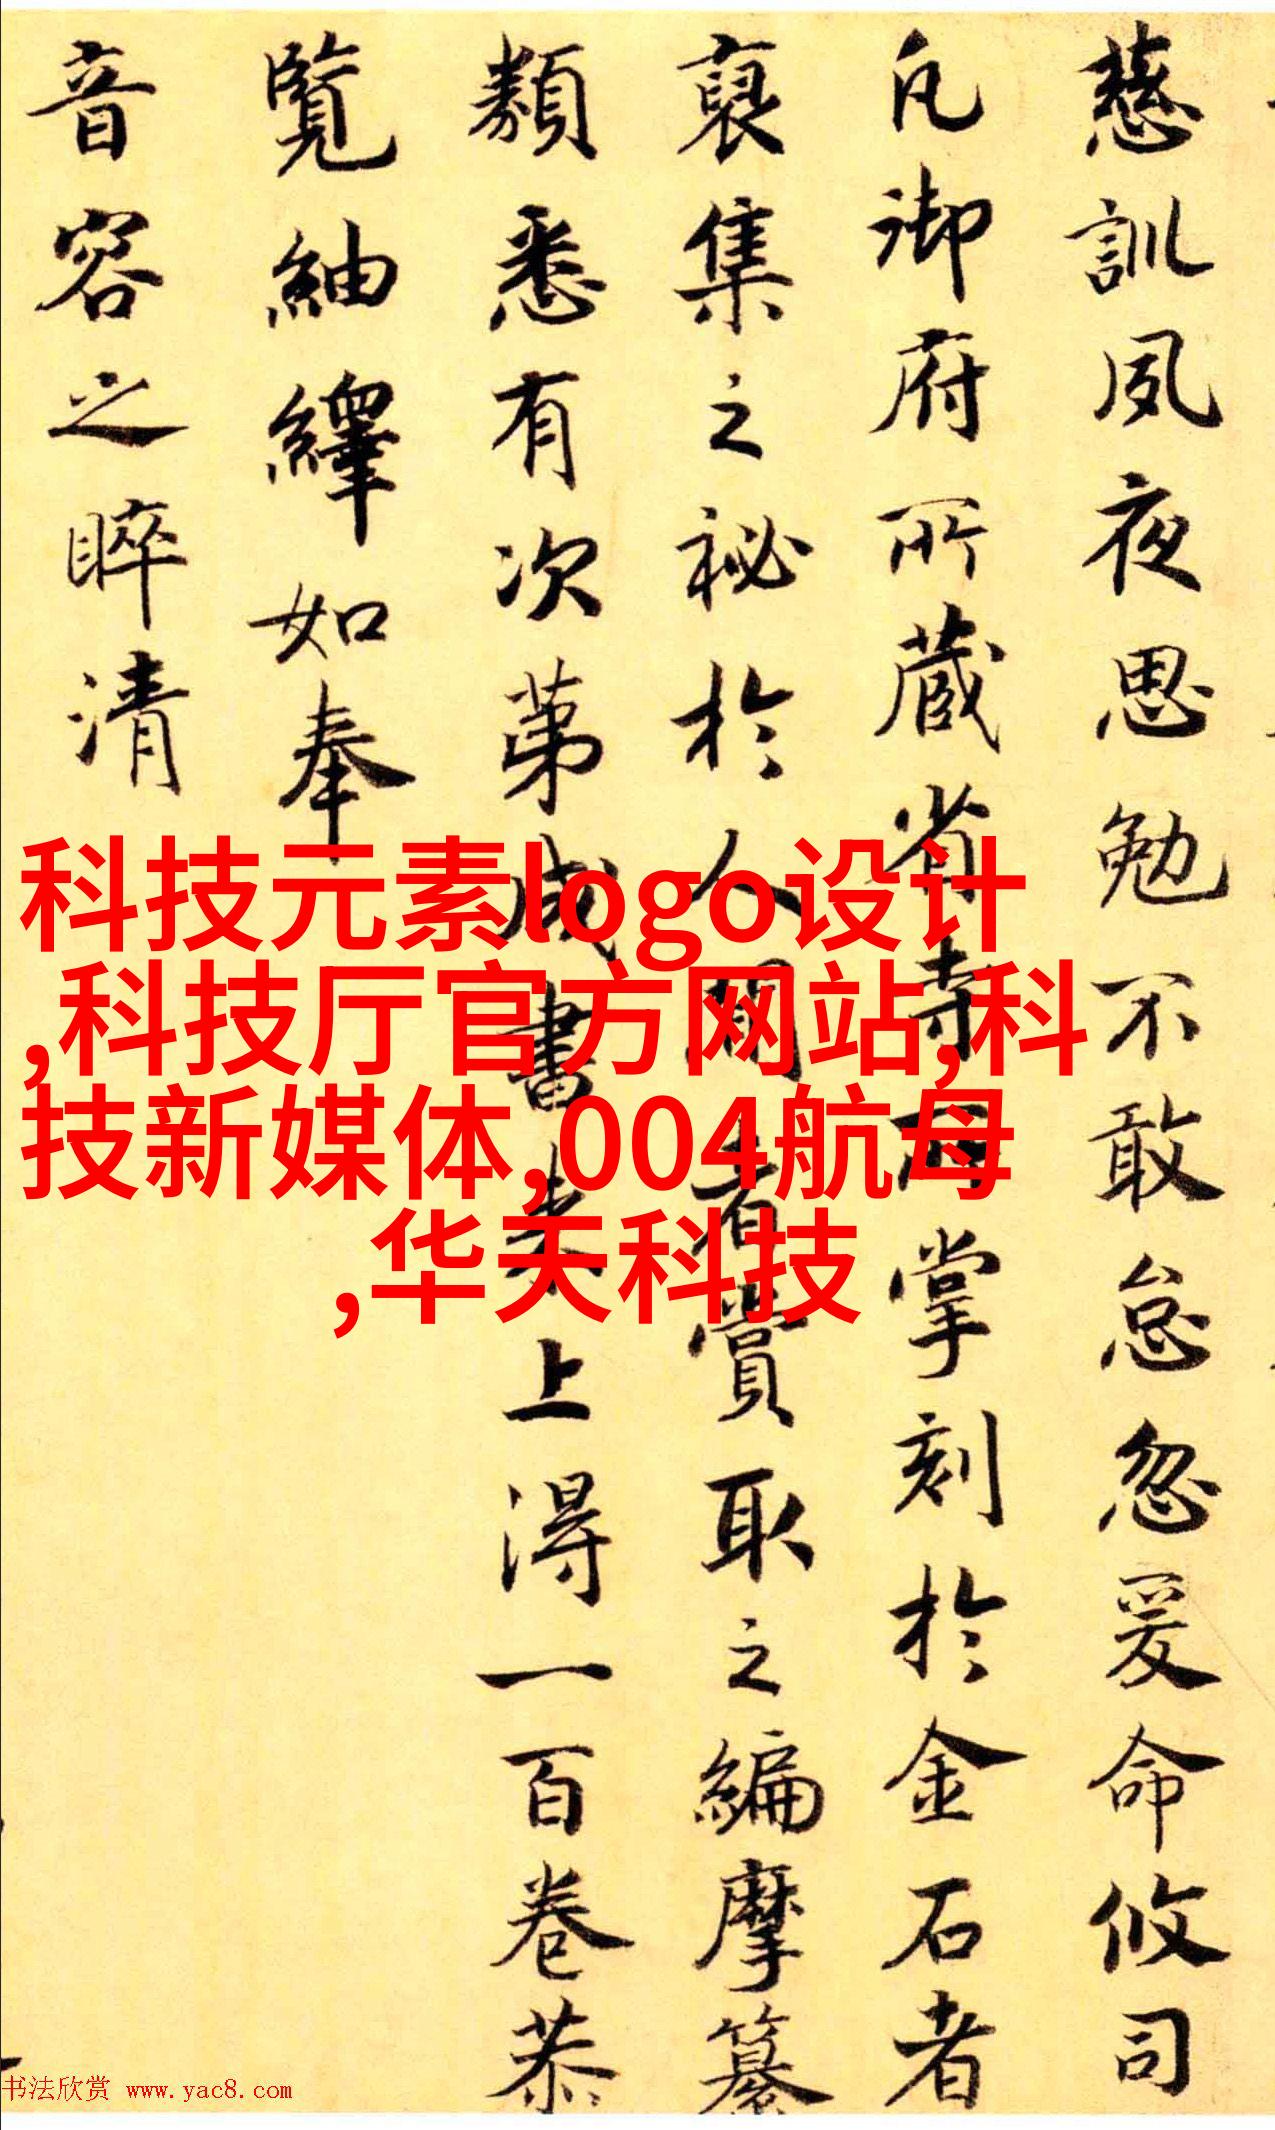 慈訓夙夜思勉不敢怠忽爰命攸司
凡御府所蔵省寺所掌刻於金石者
裒集之祕於人間者賞取之編摩纂
類悉有次第成書来上得一百卷恭
覽紬繹如奉
音容之睟清
科技元素logo设计
,科技厅官方网站,科
技新媒体,004航母
,华天科技
书法欣赏 www.yac8.com